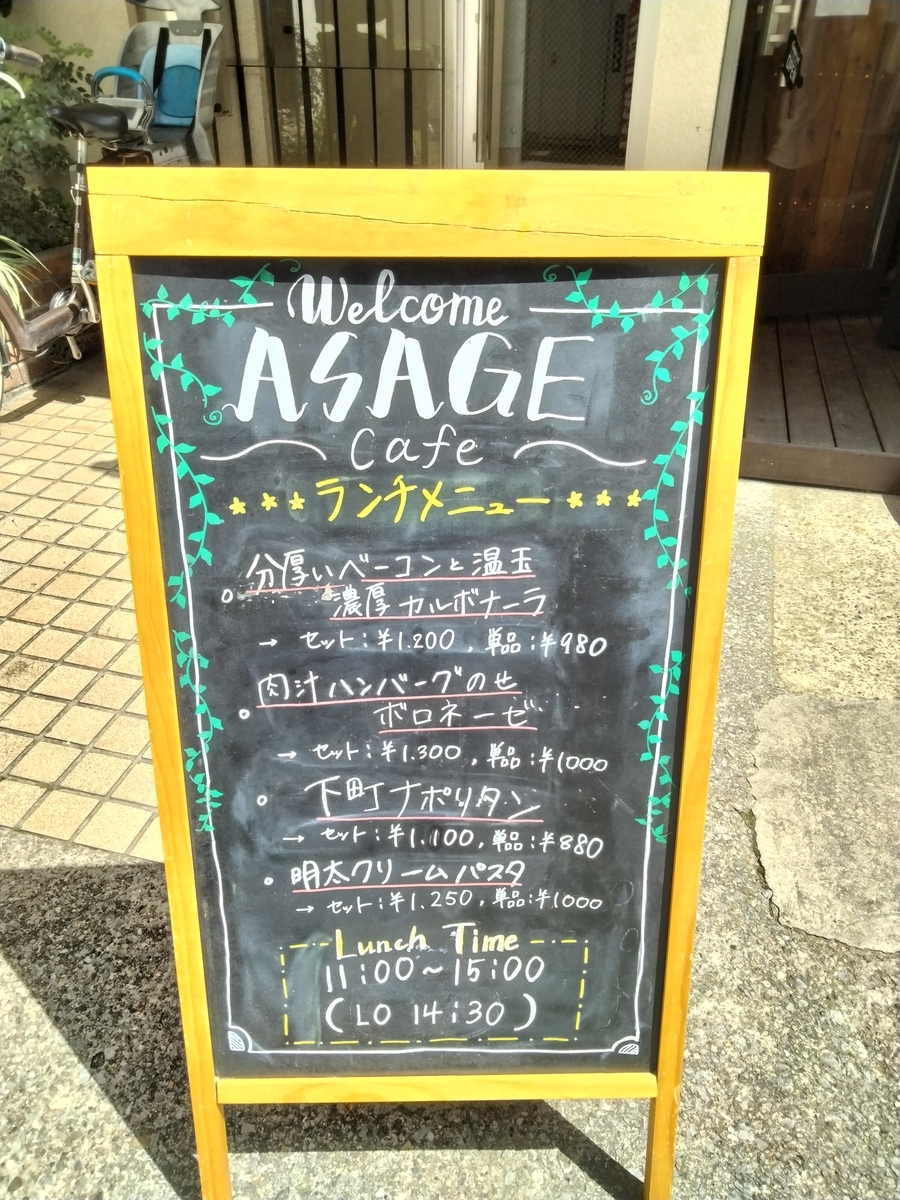 Welcome
ASAGE
Cafe
***ランチメニュー***
○ 分厚いベーコンと温玉
濃厚カルボナーラ
→ セット:¥1.200, 単品:¥980
○ 肉汁ハンバーグのせ
ボロネーゼ
→ セット:¥1.300, 単品:¥1000
○ 下町ナポリタン
→ セット:¥1.100, 単品:¥880
○ 明太クリームパスタ
→ セット:¥1.250, 単品:¥1000
Lunch Time
11:00~15:00
(LO 14:30)